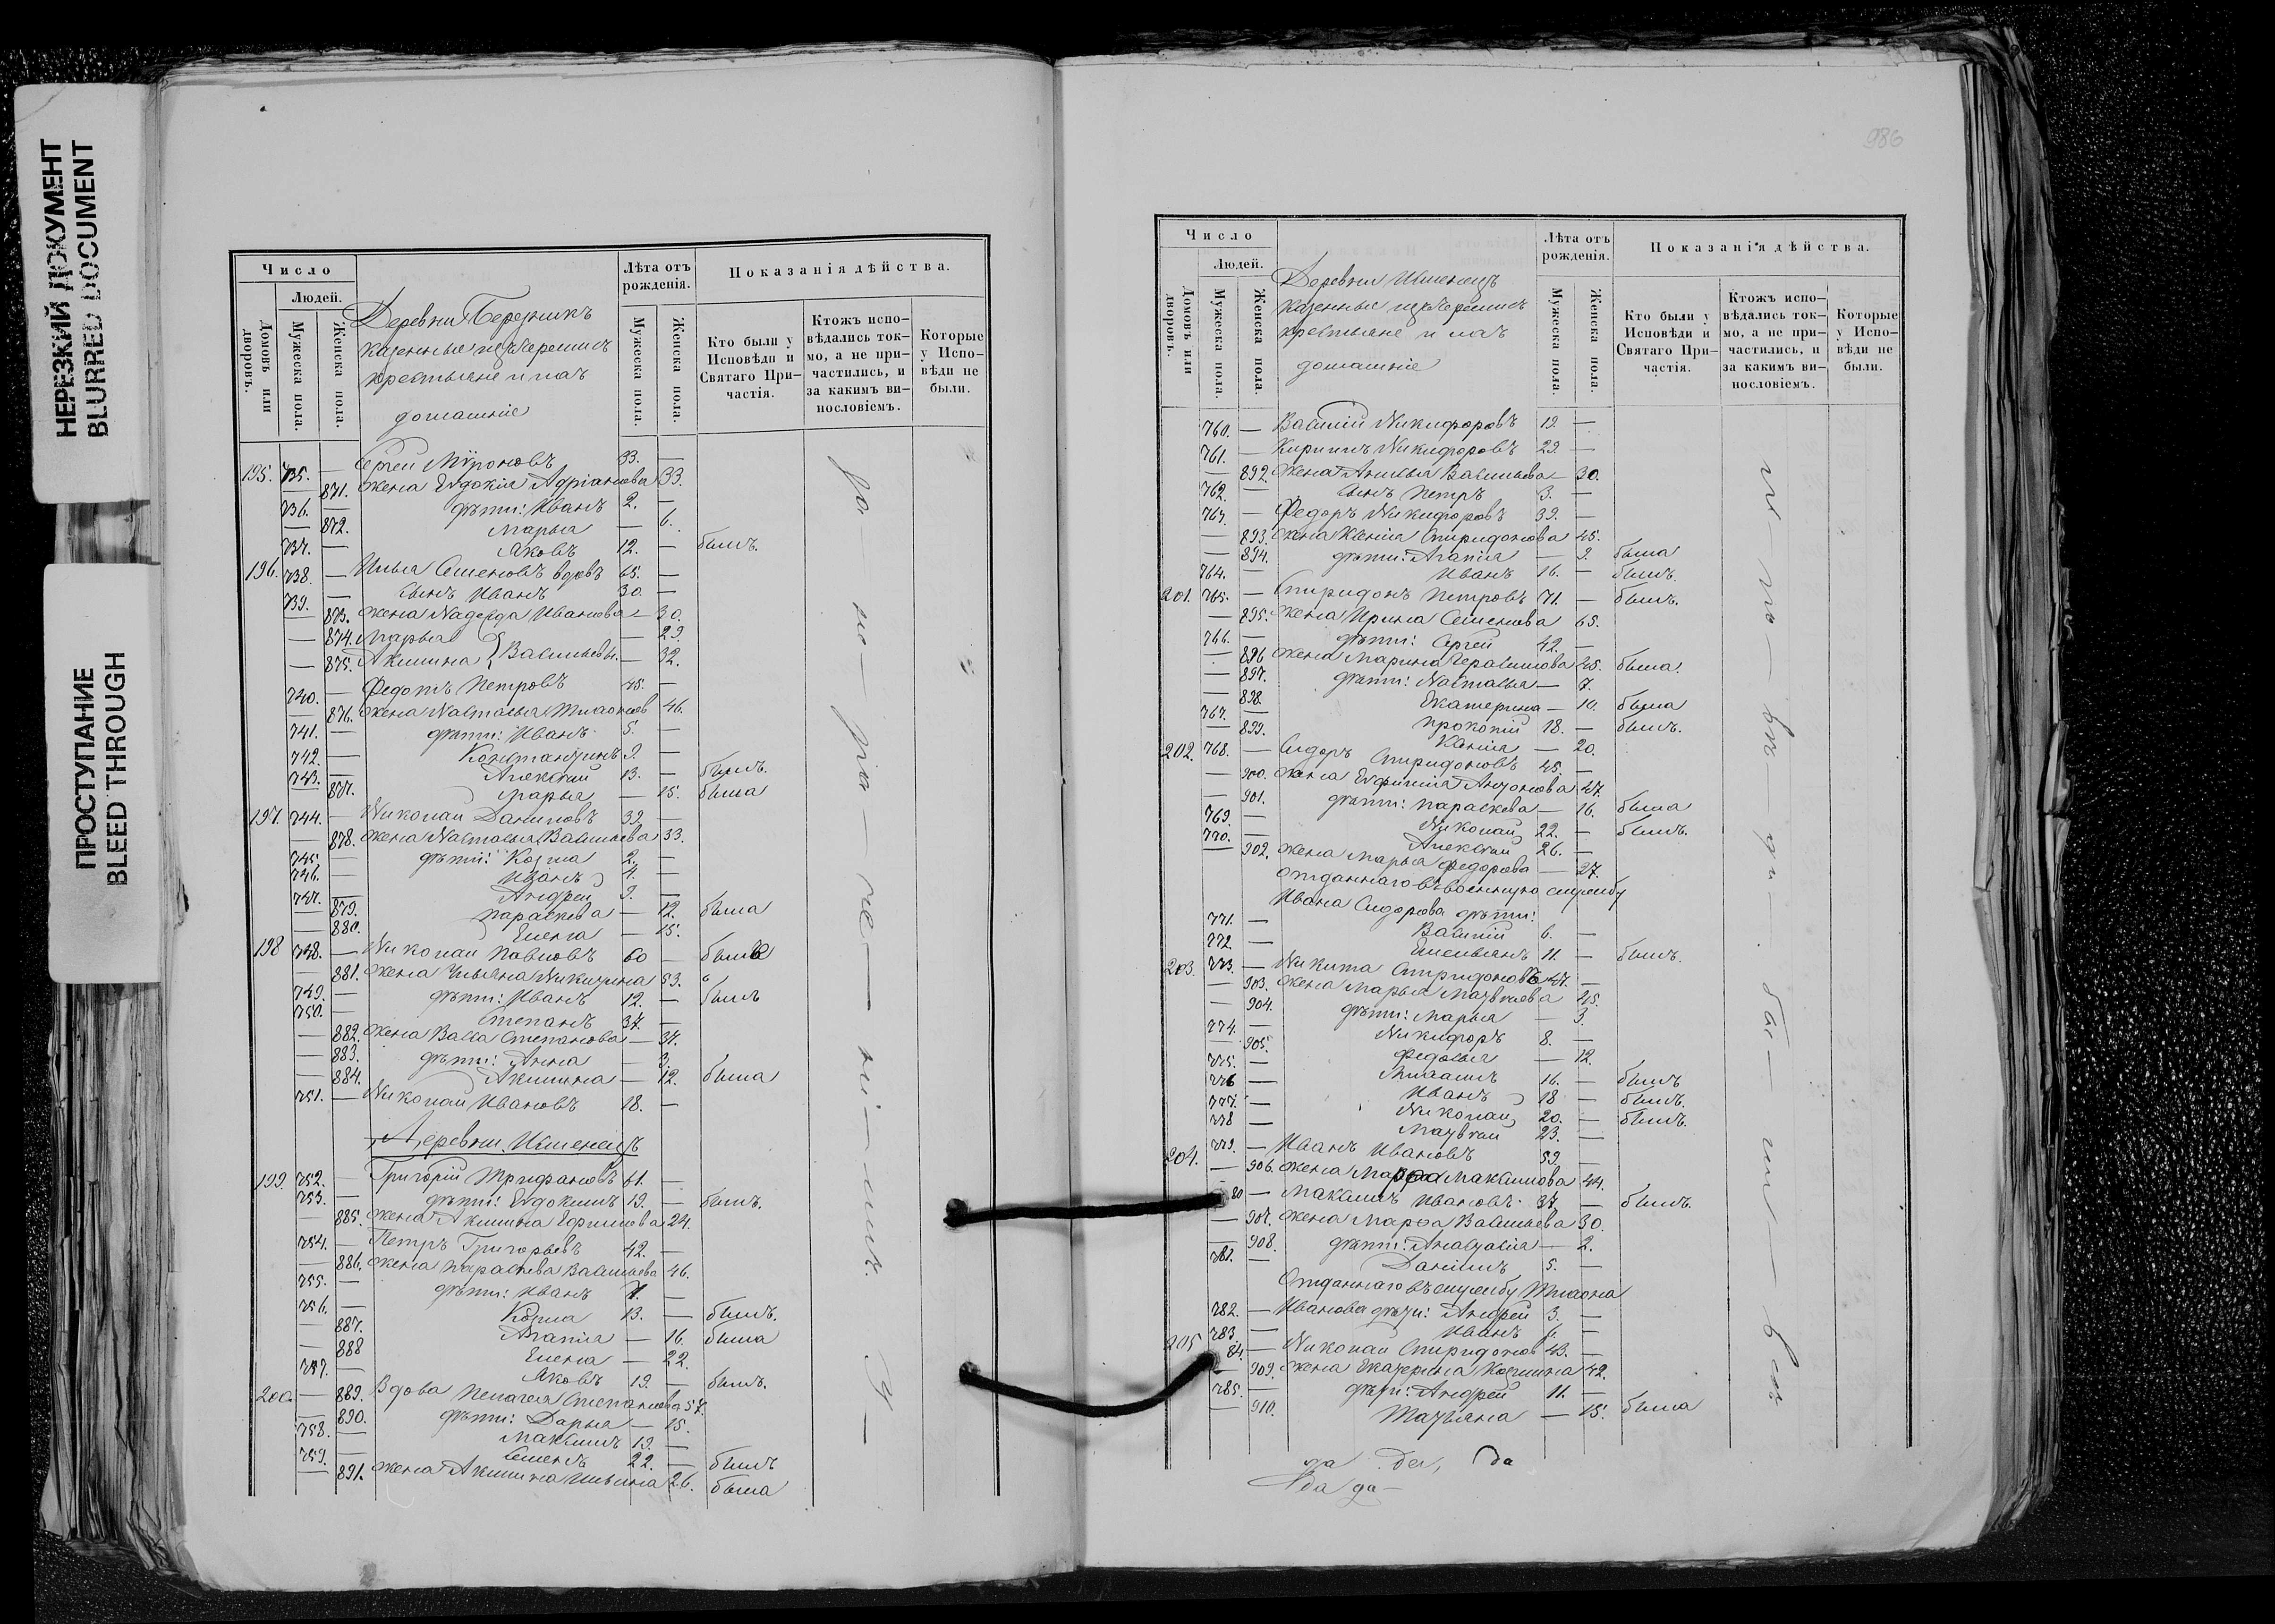 НЕРЕЗКИЙ ДОКУМЕНТ
BLURRED DOCUMENT
ПРОСТУПАНИЕ
BLEED THROUGH
Число
Лѣта отъ рожденія.
Показанія дѣйства.
Домовъ или дворовъ.
Людей.
Мужеска пола.
Женска пола.
Мужеска пола.
Женска пола.
Кто были у Исповѣди и Святаго При-частія.
Ктожъ испо-вѣдались ток-мо, а не при-частились, и за какимъ ви-нословіемъ.
Которые у Испо-вѣди не были.
Деревни Бережникъ
казенные изъ черемисъ
крестьяне и ихъ
домашніе
195. 735. — Сергей Мѵроновъ 33. —
— 871. жена Евдокія Адріанова 33.
736. — дѣти: Иванъ 2. —
— 872. Марья — 6.
737. — Яковъ 12. — былъ.
196. 738. — Илья Семеновъ вдовъ 65. —
739. — сынъ Иванъ 30. —
— 873. жена Надежда Иванова — 30.
— 874. Марья — 29.
— 875. Акилина } Васильевы — 32.
740. — Федотъ Петровъ 45. —
— 876. жена Наталья 46.
741. — дѣти: Иванъ 5. —
742. — Константинъ 9. —
743. — Алексѣй 13. — былъ.
— 877. Марья — 15. была
197. 744. — Николай Даниловъ 39. —
— 878. жена Наталья Васильева 33.
745. — дѣти: Козма 2. —
746. — Иванъ 4. —
747. — Андрей 9. —
— 879. Параскева — 12. была
— 880. Елена — 15.
198 748. — Николай Павловъ 60 —
— 881. жена Ульяна Никитина 53.
749. — дѣти: Иванъ 12. — былъ
750. — Степанъ 37. —
— 882. жена Васса Степанова — 37.
— 883. дѣти: Анна — 3.
— 884. Акилина — 12. была
751. — Николай Ивановъ 18. —
Деревни Ишенецъ
199. 752. — Григорій Трифановъ 61. —
753. — дѣти: Евдокимъ 19. — былъ.
— 885. жена Акилина Ефимова 24.
754. — Петръ Григорьевъ 42. —
— 886. жена Параскева Васильева 46.
755. — дѣти: Иванъ 7. —
756. — Козма 13. — былъ.
— 887. Агапія — 16. была
— 888 Елена — 22.
757. — Яковъ 19. — былъ.
200. — 889. Вдова Пелагея Степанова 57.
— 890. дѣти: Дарья — 15.
758. — Максимъ 19. —
759. — Семенъ 22. — былъ
— 891. жена Акилина Ильина 26. была
986
Число
Лѣта отъ рожденія.
Показанія дѣйства.
Домовъ или дворовъ.
Людей.
Мужеска пола.
Женска пола.
Мужеска пола.
Женска пола.
Кто были у Исповѣди и Святаго При-частія.
Ктожъ испо-вѣдались ток-мо, а не при-частились, и за какимъ ви-нословіемъ.
Которые у Испо-вѣди не были.
Деревни Ишенецъ
казенные изъ черемисъ
крестьяне и ихъ
домашніе
760. — Василій Никифоровъ 19 —
761. — Кирилъ Никифоровъ 29. —
— 892. жена Анисья Васильева — 30.
762. — сынъ Петръ 3. —
763. — Федоръ Никифоровъ 39. —
— 893. жена Ксенія Спиридонова 45.
— 894. дѣти: Агапія — 9. была
764. — Иванъ 16. — былъ.
201. 765. — Спиридонъ Петровъ 71. — былъ.
— 895. жена Ирина Семенова 65.
766. — дѣти: Сергей 42. —
— 896 жена Марина Герасимова 45. была.
— 897. дѣти: Наталья — 7.
— 898. Екатерина — 10. была
767. — Прокопій 18. — былъ.
— 899. Ксенія — 20.
202. 768. — Сидоръ Спиридоновъ 45. —
— 900. жена Евфимія Антонова 47.
— 901. дѣти: Параскева — 16. была
769. — Николай 22. — былъ.
770. — Алексѣй 26. —
— 902. жена Марья Федорова — 27.
Отданнаго въ военную службу
Ивана Сидорова дѣти:
771. — Василій 6. —
772. — Емельянъ 11. — былъ.
203. 773. — Никита Спиридоновъ 47. —
— 903. жена Марья Матвѣева 45.
— 904. дѣти: Марья — 3.
774. — Никифоръ 8. —
— 905. Федосья — 12.
775. — Михаилъ 16. — былъ
776 — Иванъ 18 — былъ.
777. — Николай 20. — былъ.
778 — Матвѣй 23. —
204. 779. — Иванъ Ивановъ 59. —
— 906. жена Марѳа Максимова 44.
80 — Максимъ Ивановъ 37. — былъ.
— 907. жена Марѳа Васильева 30.
— 908. дѣти: Анастасія — 2.
781. — Даніилъ 5. —
Отданнаго въ службу
782. — Иванова дѣти: Андрей 3. —
783. — Иванъ 6. —
205 84. — Николай Спиридонов 43. —
— 909. жена Екатерина Козмина 42.
785. — дѣти: Андрей 11. —
— 910. Татьяна — 15. была
да да
да да